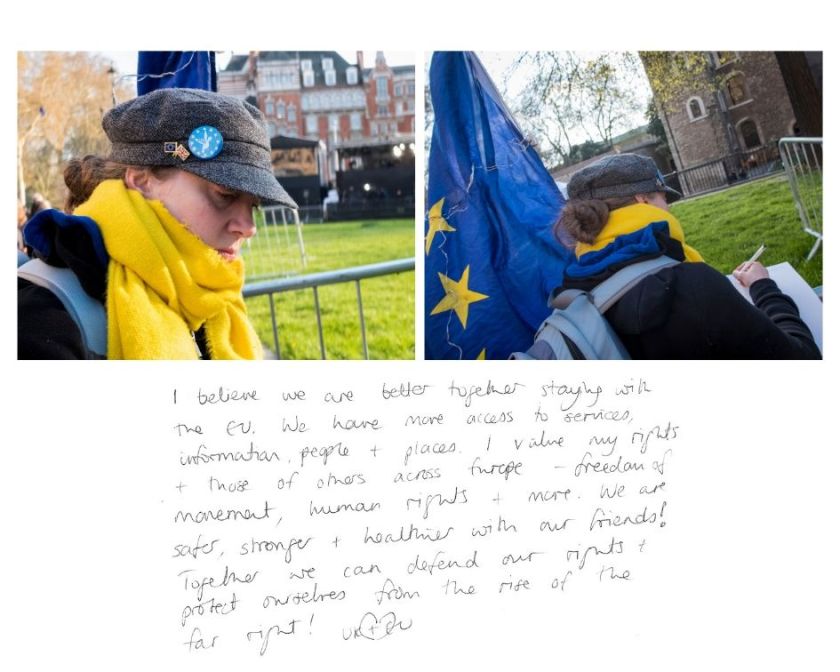 I believe we are better together staying with
the EU. We have more access to services,
information, people + places. I value my rights
+ those of others across Europe – freedom of
movement, human rights + more. We are
safer, stronger + healthier with our friends!
Together we can defend our rights +
protect ourselves from the rise of the
far right! UK + EU